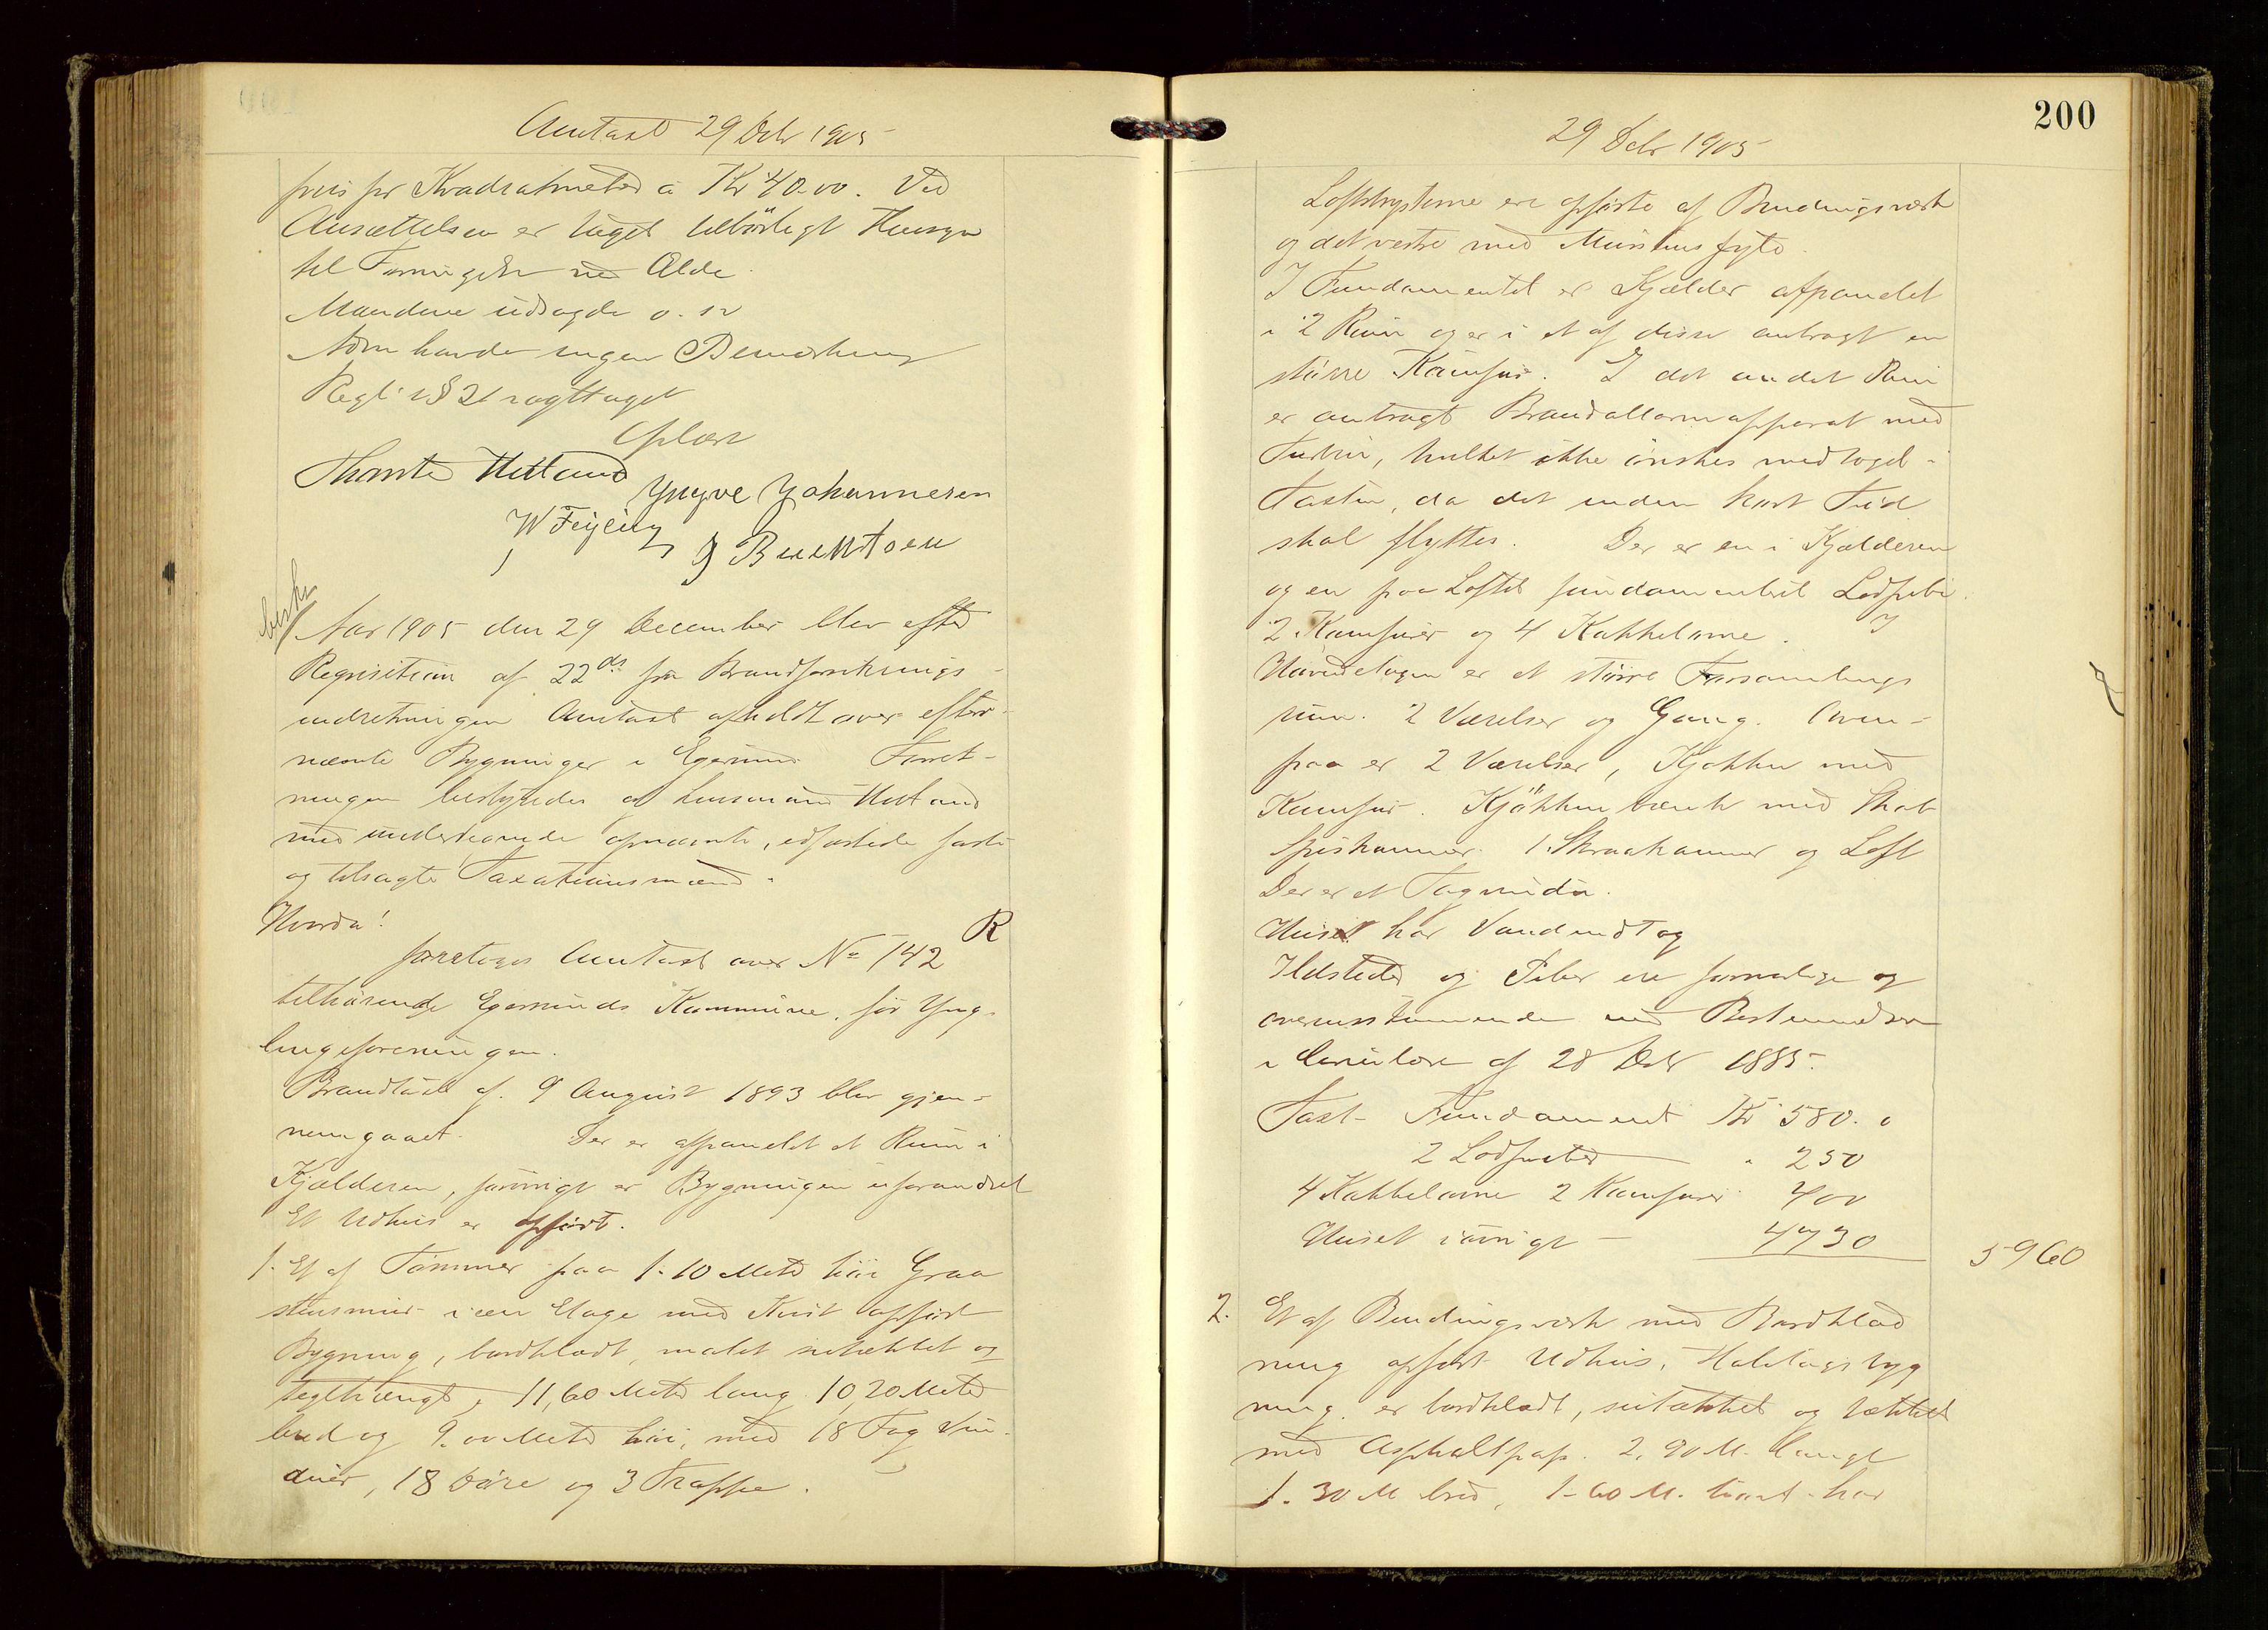 Omtaxt 29 Debr 1905
pris pr Kvadratmeter á Kr 40.00. Ved
Ansættelsen er taget tilbörligt Hensyn
til Forringelse ved Ælde
Mændene udsagde o.
havde ingen Bemærkning
Regl: s § 21 iagttaget
Oplæst
Hetland Yngve Johannesen
W Feyling J Berentsen
Aar 1905 den 29 December blev efter
Requisition af 22 ds fra Brandforsikrings-
indretningen Omtaxt afholdt over efter-
nævnte Bygninger i Egersund. Forret-
ningen bestyredes af Lensmand Hetland
med undertegnede opnævnte, edfæstede faste
og tilsagte Taxationsmænd.
Hvorda!
foretoges Omtaxt over No 142 R
tilhørende Egersunds Kommune, før Yng-
lingeforeningen.
Brandtaxt af 9 August 1893 blev gjen-
nemgaaet. Der er afpanelet et Rum i
Kjælderen, forövrigt er Bygningen uforandret
Et Udhus er opført.
1. Et af Tømmer paa 1.10 Meter höi Graa
stensmur i een Etage med Kvist opført
Bygning, bordklædt, malet sutækket og
teglhængt, 11,60 Meter lang 10,20 Meter
bred og 9.00 Meter høi, med 18 Fag Vin-
duer, 18 Døre og 3 Trappe.
200
29 Debr 1905
ere opførte af Bindingsværk
og det vestre med Murstensfyld.
I Fundamentet er Kjælder afpanelet
i 2 Rum og er i et af disse anbragt en
større Kamfur. I det andet Rum
er anbragt Brandallarmapparat med
Turbin, hvilket ikke ønskes medtaget i
Taxten, da det inden kort Tid
skal flyttes. Der er en i Kjælderen
og en paa Loftet fundamenteret Lodpibe.
2 Kamfurer og 4 Kakkelovne. I
Hovedetagen er et större Forsamlings
rum. 2 Værelser og Gang. Oven-
paa er 2 Værelser, Kjøkken med
Kamfur. Kjökkenbænk med Skab
Spiskammer. 1 Skraakammer og Loft
Der er et Tagvindu.
Huset har Vandindtag
Ildsteder og Piber ere forsvarlige og
overensstemmende med Bestemmelsen
i Cirkulære af 28 Debr 1885.
Taxt Fundament Kr 580. 0
2 Lodpiber " 250
4 Kakkelovne 2 Kamfurer 400
Huset iövrigt 4730
5960
2. Et af Bindingsværk med Bordklæd
ning opført Udhus, Halvtagsbyg
ning. er bordklædt, sutækket og tækket
med Asphaltpap. 2,90 M. langt
1.30 M bred, 1-60 M. höit har